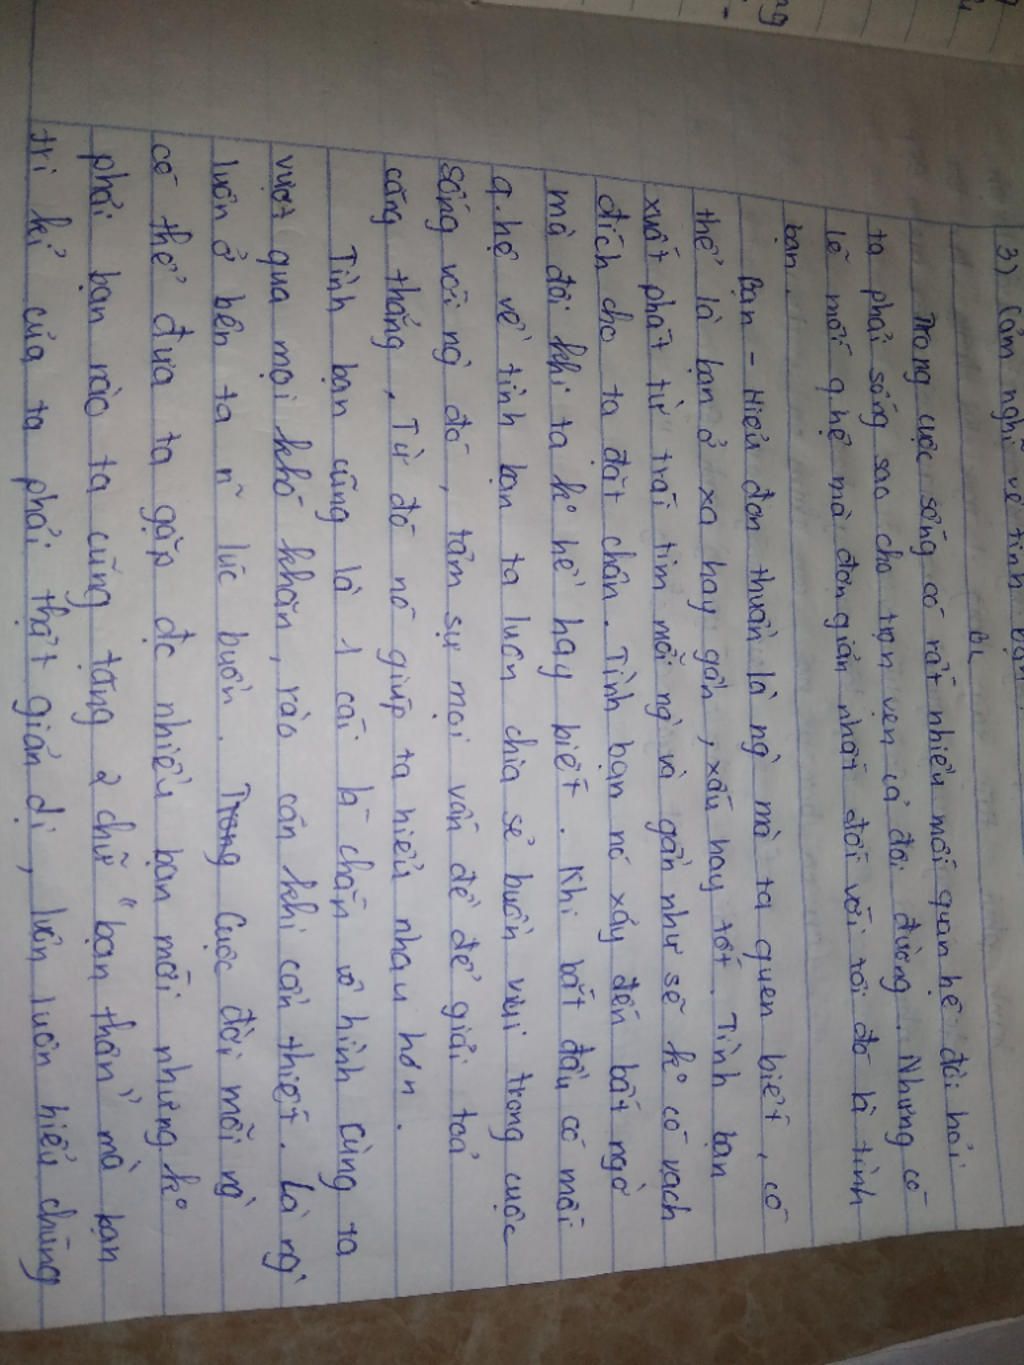 3) Cảm nghĩ về tình bạn.
BL
Trong cuộc sống có rất nhiều mối quan hệ đòi hỏi
ta phải sống sao cho trọn vẹn cả đôi đường. Nhưng có
lẽ mối q.hệ mà đơn giản nhất đối với tôi đó là tình
bạn.
Bạn - Hiểu đơn thuần là ng` mà ta quen biết, có
thể là bạn ở xa hay gần, xấu hay tốt. Tình bạn
xuất phát từ trái tim mỗi ng` và gần như sẽ ko có vạch
đích cho ta đặt chân. Tình bạn nó xảy đến bất ngờ
mà đôi khi ta ko hề hay biết. Khi bắt đầu có mối
q.hệ về tình bạn ta luôn chia sẻ buồn vui trong cuộc
sống với ng` đó, tâm sự mọi vấn đề để giải toả
căng thẳng. Từ đó nó giúp ta hiểu nhau hơn.
Tình bạn cũng là 1 cái lá chắn vô hình cùng ta
vượt qua mọi khó khăn, rào cản khi cần thiết. Là ng`
luôn ở bên ta n~ lúc buồn. Trong cuộc đời mỗi ng`
có thể đưa ta gặp đc nhiều bạn mới nhưng ko
phải bạn nào ta cũng tặng 2 chữ "bạn thân" mà bạn
tri kỉ của ta phải thật giản dị, luôn luôn hiểu chúng